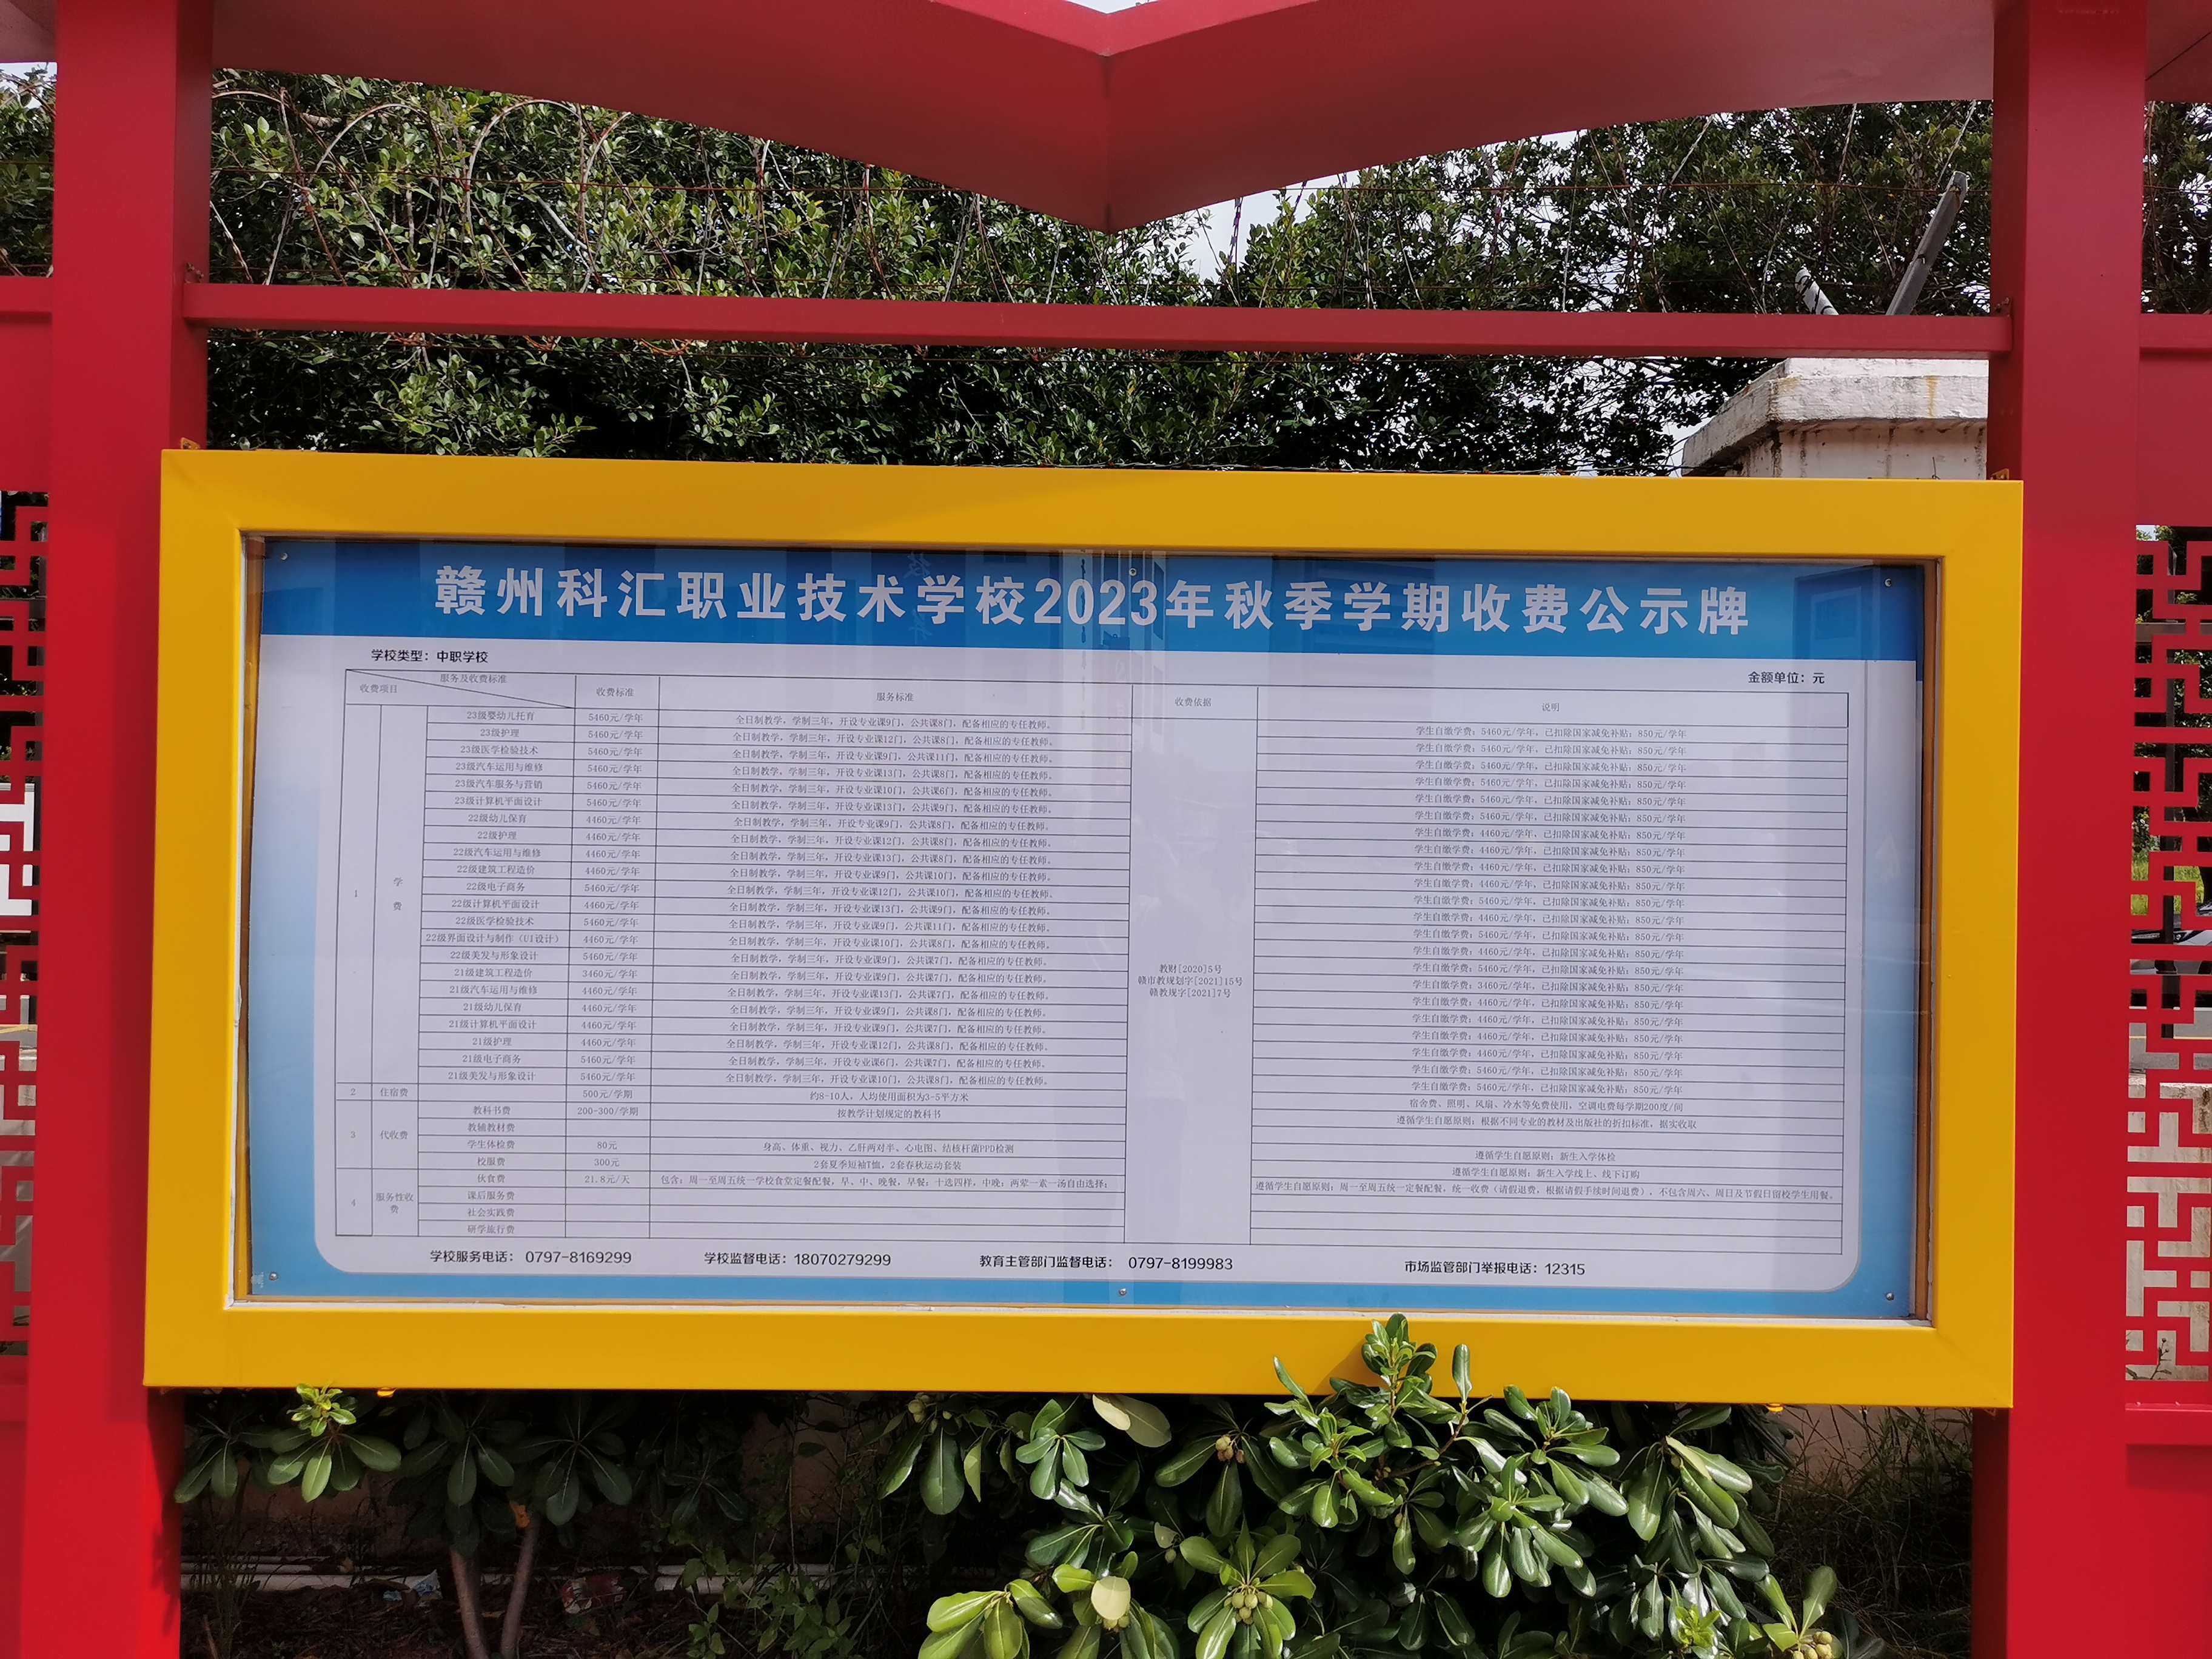 赣州科汇职业技术学校2023年秋季学期收费公示牌
学校类型：中职学校
金额单位：元
收费项目 服务及收费标准 收费标准 服务标准 收费依据 说明
1 学费
23级婴幼儿托育 5460元/学年 全日制教学，学制三年，开设专业课9门，公共课8门，配备相应的专任教师。 学生自缴学费：5460元/学年，已扣除国家减免补贴：850元/学年
23级护理 5460元/学年 全日制教学，学制三年，开设专业课12门，公共课8门，配备相应的专任教师。 学生自缴学费：5460元/学年，已扣除国家减免补贴：850元/学年
23级医学检验技术 5460元/学年 全日制教学，学制三年，开设专业课9门，公共课11门，配备相应的专任教师。 学生自缴学费：5460元/学年，已扣除国家减免补贴：850元/学年
23级汽车运用与维修 5460元/学年 全日制教学，学制三年，开设专业课13门，公共课8门，配备相应的专任教师。 学生自缴学费：5460元/学年，已扣除国家减免补贴：850元/学年
23级汽车服务与营销 5460元/学年 全日制教学，学制三年，开设专业课10门，公共课6门，配备相应的专任教师。 学生自缴学费：5460元/学年，已扣除国家减免补贴：850元/学年
23级计算机平面设计 5460元/学年 全日制教学，学制三年，开设专业课13门，公共课9门，配备相应的专任教师。 学生自缴学费：5460元/学年，已扣除国家减免补贴：850元/学年
22级幼儿保育 4460元/学年 全日制教学，学制三年，开设专业课9门，公共课8门，配备相应的专任教师。 学生自缴学费：4460元/学年，已扣除国家减免补贴：850元/学年
22级护理 4460元/学年 全日制教学，学制三年，开设专业课12门，公共课8门，配备相应的专任教师。 学生自缴学费：4460元/学年，已扣除国家减免补贴：850元/学年
22级汽车运用与维修 4460元/学年 全日制教学，学制三年，开设专业课13门，公共课8门，配备相应的专任教师。 学生自缴学费：4460元/学年，已扣除国家减免补贴：850元/学年
22级建筑工程造价 4460元/学年 全日制教学，学制三年，开设专业课9门，公共课10门，配备相应的专任教师。 学生自缴学费：4460元/学年，已扣除国家减免补贴：850元/学年
22级电子商务 5460元/学年 全日制教学，学制三年，开设专业课12门，公共课10门，配备相应的专任教师。 学生自缴学费：5460元/学年，已扣除国家减免补贴：850元/学年
22级计算机平面设计 4460元/学年 全日制教学，学制三年，开设专业课13门，公共课9门，配备相应的专任教师。 学生自缴学费：4460元/学年，已扣除国家减免补贴：850元/学年
22级医学检验技术 5460元/学年 全日制教学，学制三年，开设专业课9门，公共课11门，配备相应的专任教师。 学生自缴学费：5460元/学年，已扣除国家减免补贴：850元/学年
22级界面设计与制作（UI设计） 4460元/学年 全日制教学，学制三年，开设专业课10门，公共课8门，配备相应的专任教师。 学生自缴学费：4460元/学年，已扣除国家减免补贴：850元/学年
22级美发与形象设计 5460元/学年 全日制教学，学制三年，开设专业课9门，公共课7门，配备相应的专任教师。 学生自缴学费：5460元/学年，已扣除国家减免补贴：850元/学年
21级建筑工程造价 3460元/学年 全日制教学，学制三年，开设专业课9门，公共课7门，配备相应的专任教师。 学生自缴学费：3460元/学年，已扣除国家减免补贴：850元/学年
21级汽车运用与维修 4460元/学年 全日制教学，学制三年，开设专业课13门，公共课7门，配备相应的专任教师。 学生自缴学费：4460元/学年，已扣除国家减免补贴：850元/学年
21级幼儿保育 4460元/学年 全日制教学，学制三年，开设专业课9门，公共课8门，配备相应的专任教师。 学生自缴学费：4460元/学年，已扣除国家减免补贴：850元/学年
21级计算机平面设计 4460元/学年 全日制教学，学制三年，开设专业课9门，公共课7门，配备相应的专任教师。 学生自缴学费：4460元/学年，已扣除国家减免补贴：850元/学年
21级护理 4460元/学年 全日制教学，学制三年，开设专业课12门，公共课8门，配备相应的专任教师。 学生自缴学费：4460元/学年，已扣除国家减免补贴：850元/学年
21级电子商务 5460元/学年 全日制教学，学制三年，开设专业课6门，公共课7门，配备相应的专任教师。 学生自缴学费：5460元/学年，已扣除国家减免补贴：850元/学年
21级美发与形象设计 5460元/学年 全日制教学，学制三年，开设专业课10门，公共课8门，配备相应的专任教师。 学生自缴学费：5460元/学年，已扣除国家减免补贴：850元/学年
教财[2020]5号
赣市教规划字[2021]15号
赣教规字[2021]7号
2 住宿费 500元/学期 约8-10人，人均使用面积为3-5平方米 宿舍费、照明、风扇、冷水等免费使用，空调电费每学期200度/间
3 代收费
教科书费 200-300/学期 按教学计划规定的教科书 遵循学生自愿原则：根据不同专业的教材及出版社的折扣标准，据实收取
教辅教材费
学生体检费 80元 身高、体重、视力、乙肝两对半、心电图、结核杆菌PPD检测 遵循学生自愿原则：新生入学体检
校服费 300元 2套夏季短袖T恤，2套春秋运动套装 遵循学生自愿原则：新生入学线上、线下订购
4 服务性收费
伙食费 21.8元/天 包含：周一至周五统一学校食堂定餐配餐，早、中、晚餐，早餐：十选四样，中晚：两荤一素一汤自由选择； 遵循学生自愿原则：周一至周五统一定餐配餐，统一收费（请假退费，根据请假手续时间退费），不包含周六、周日及节假日留校学生用餐。
课后服务费
社会实践费
研学旅行费
学校服务电话： 0797-8169299 学校监督电话：18070279299 教育主管部门监督电话： 0797-8199983 市场监管部门举报电话：12315